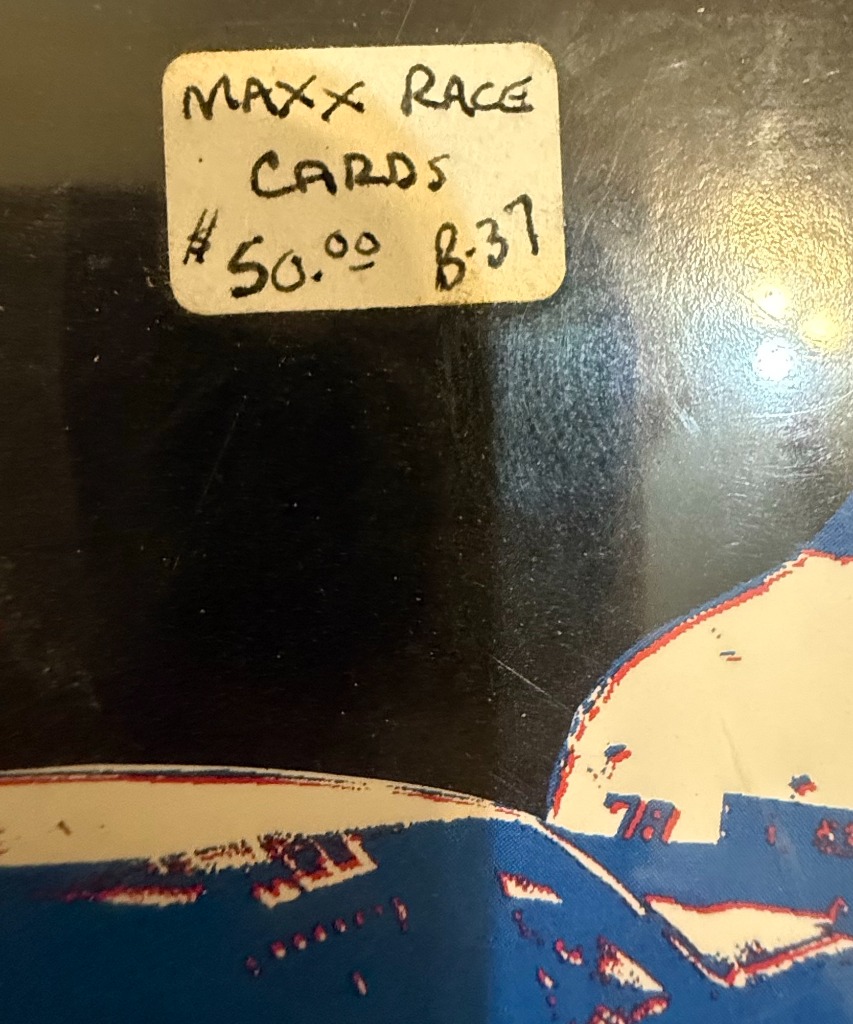 MAXX RACE
CARDS
$50.00 B-37
78